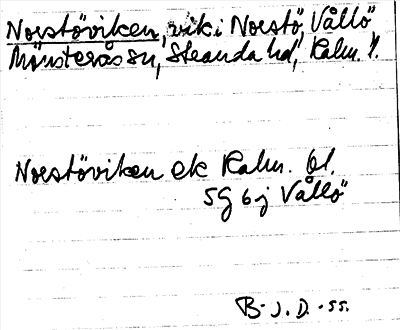 Norstöviken, vik i Norstö, Vållö
Mönsterås sn, Stranda hd, Kalm. l.
Norstöviken ek Kalm. bl.
5G 6j Vållö
B. J. D. -ss.